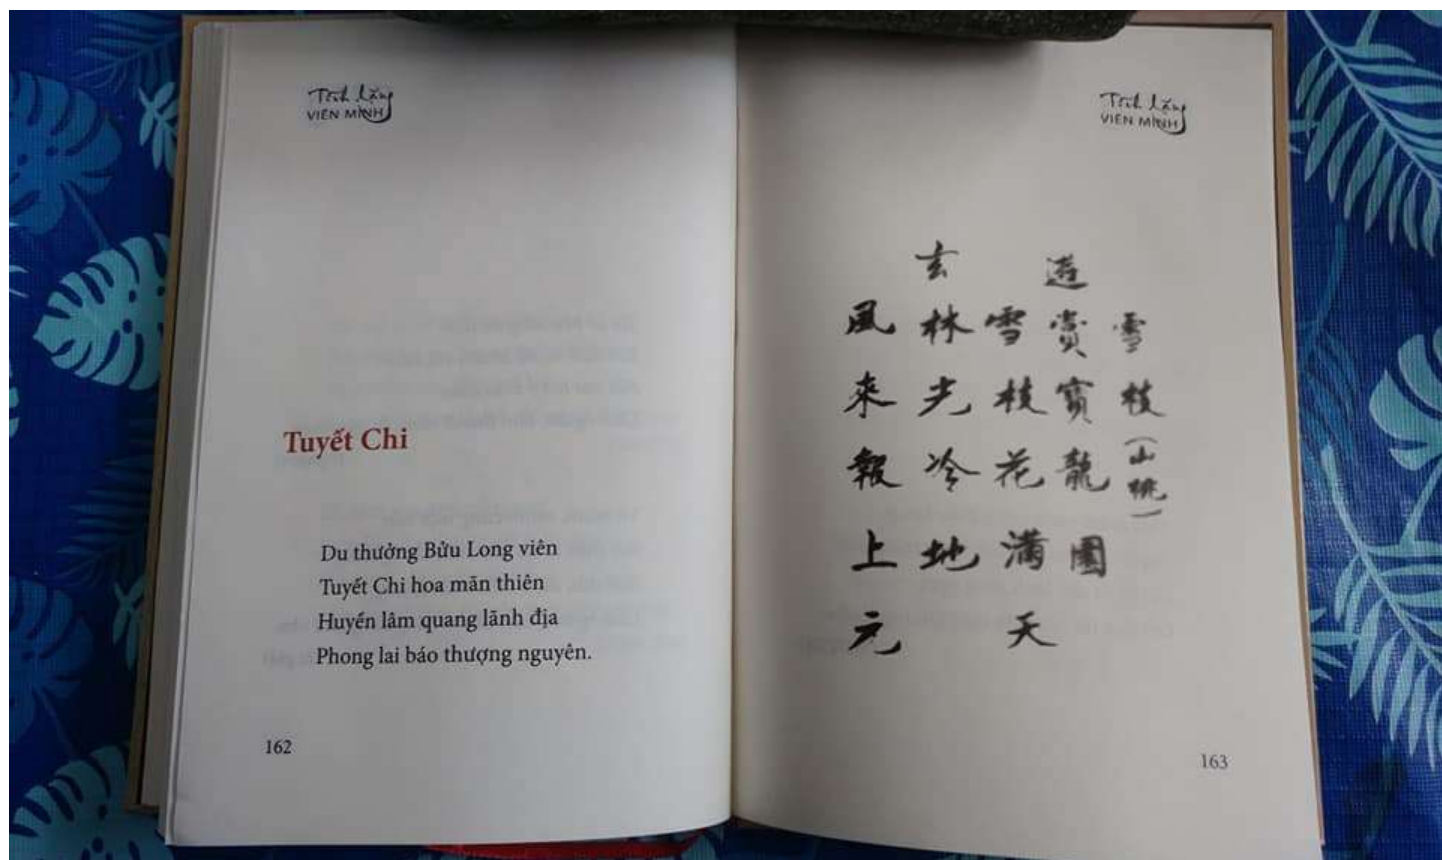 Tĩnh lặng
VIÊN MINH
Tuyết Chi
Du thưởng Bửu Long viên
Tuyết Chi hoa mãn thiên
Huyền lâm quang lãnh địa
Phong lai báo thượng nguyên.
162
Tĩnh lặng
VIÊN MINH
雪枝(山
遊賞寶龍園
雪枝花滿天
玄林光冷地
風來報上元
163